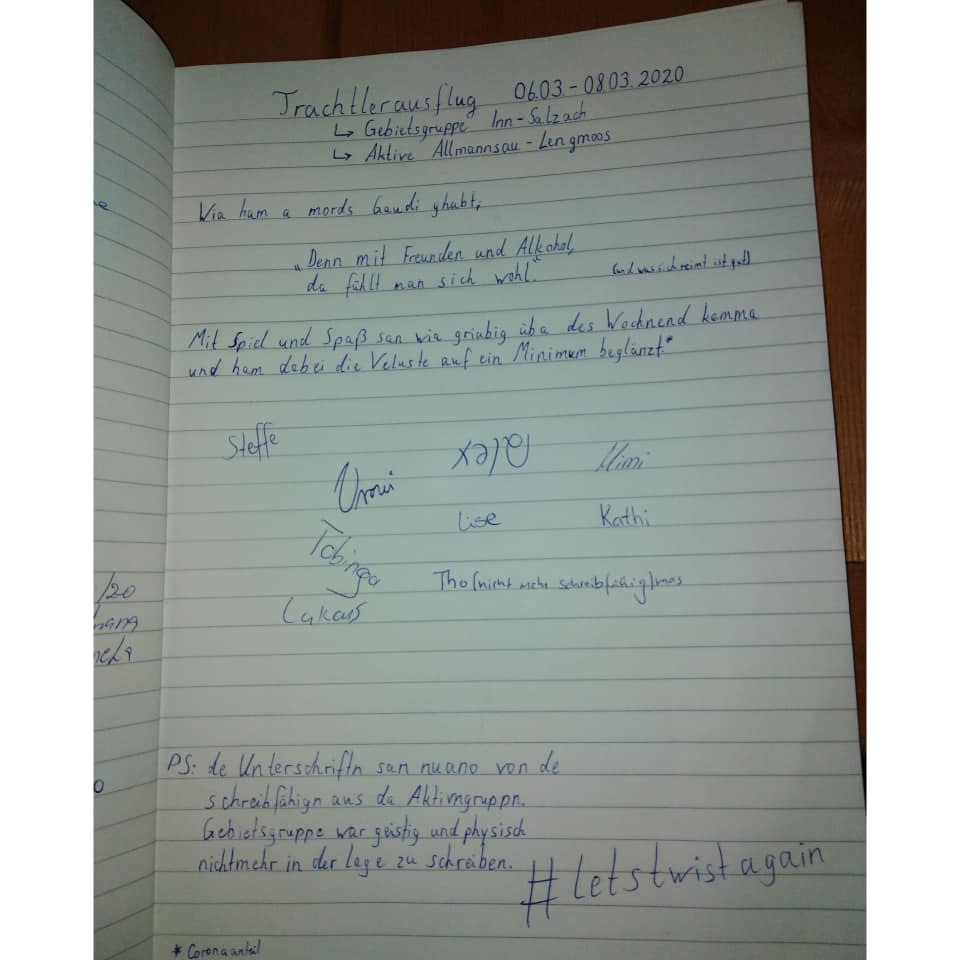 Trachtlerausflug 06.03. - 08.03.2020
↳ Gebietsgruppe Inn-Salzach
↳ Aktive Allmannsau - Lengmoos
Via ham a mords Gaudi ghabt,
„Denn mit Freunden und Alkohol,
da fühlt man sich wohl.“ (und was sich reimt ist gut)
Mit Spiel und Spaß san wia griabig üba des Wochnend kemma
und ham dabei die Veluste auf ein Minimum beglänzt.*
Steffe
Vroni Alex Mimi
Lise Kathi
Tobinga
Tho(nicht mehr schreibfähig)mas
Lukas
PS: de Unterschriftn san nuano von de
schreibfähign aus da Aktivngruppn.
Gebietsgruppe war geistig und physisch
nichtmehr in der Lage zu schreiben.
#letstwistagain
* Coronaanteil
e
/20
0